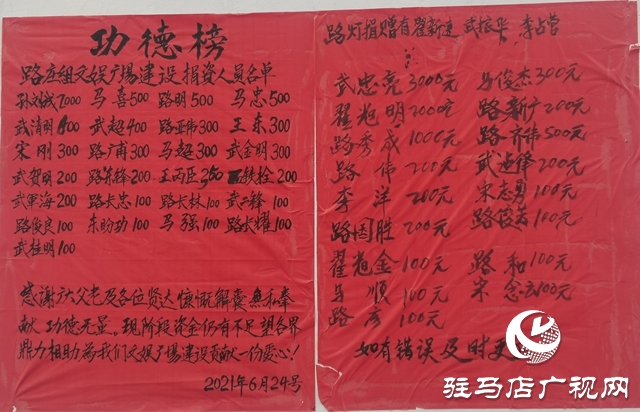 功德榜
路庄组文娱广场建设捐资人员名单
孙刘成7000 马喜500 路明500 马忠500
武清明500 武超400 路亚伟300 王东300
宋刚300 路广甫300 马超300 武金明300
武贺明200 路东锋200 王丙臣350 铁拴200
武军海200 路长忠100 路长林100 武二锋100
路俊良100 东盼功100 马强100 路长耀100
武桂明100
感谢广大父老及各位贤达慷慨解囊无私奉
献功德无量。现阶段资金仍有不足望各界
鼎力相助为我们文娱广场建设贡献一份爱心!
2021年6月24号
路灯捐赠有翟新连 武振华 李占营
武忠亮3000元 马俊杰300元
翟旭明2000元 路新广200元
路秀成1000元 路齐伟500元
路伟200元 武进锋200元
李洋200元 宋志勇100元
路国胜200元 路俊芳100元
翟金100元 路和100元
马顺100元 宋念云100元
路彦100元
如有错误及时更
驻马店广视网